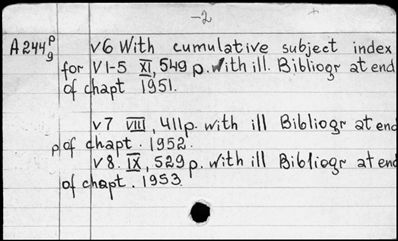 -2
A244 p/g v6 With cumulative subject index
for V1-5 XI, 549 p. With ill. Bibliogr at end
of chapt 1951.
v7 VIII, 411p. with ill Bibliogr at end
p of chapt. 1952.
v8. IX, 529 p. with ill Bibliogr at end
of chapt. 1953